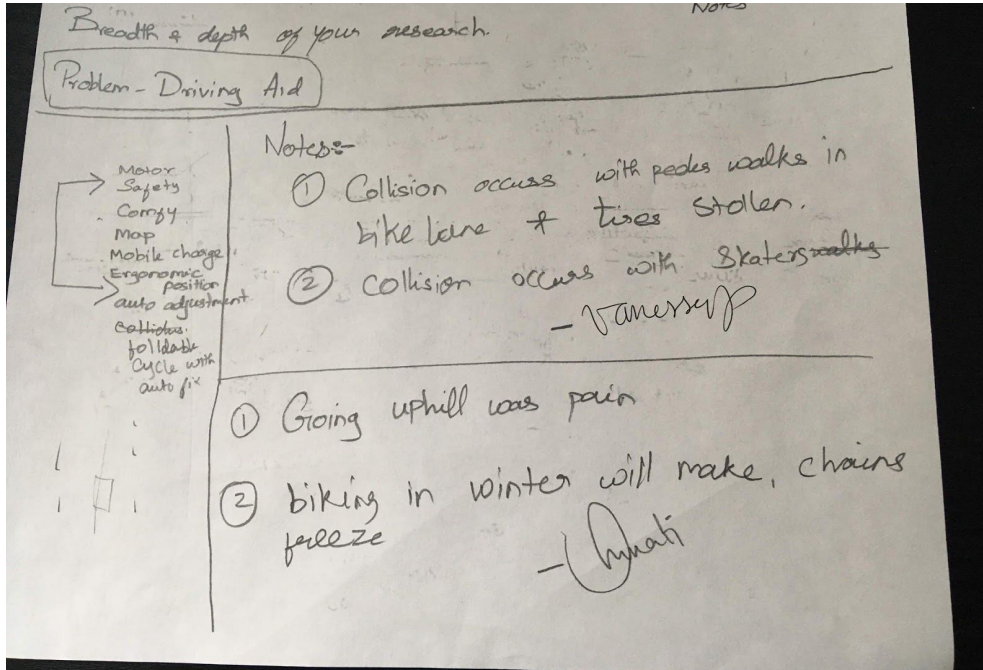 Notes
Breadth & depth of your research.
Problem - Driving Aid
Motor
Safety
Comfy
Map
Mobile charge
Ergonomic
position
auto adjustment
folldable
Cycle with
auto fix
Notes:-
① Collision occuss with pedes walks in
bike lane & tires stollen.
② Collision occurs with Skaters walks
① Going uphill was pain
② biking in winter will make, chains
freeze